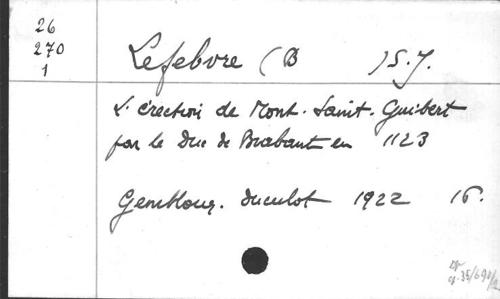 26
270
1
Lefebvre (B )S.J.
L'érection de Mont-Saint-Guibert
par le Duc de Brabant en 1123
Gembloux. Duculot 1922 16.